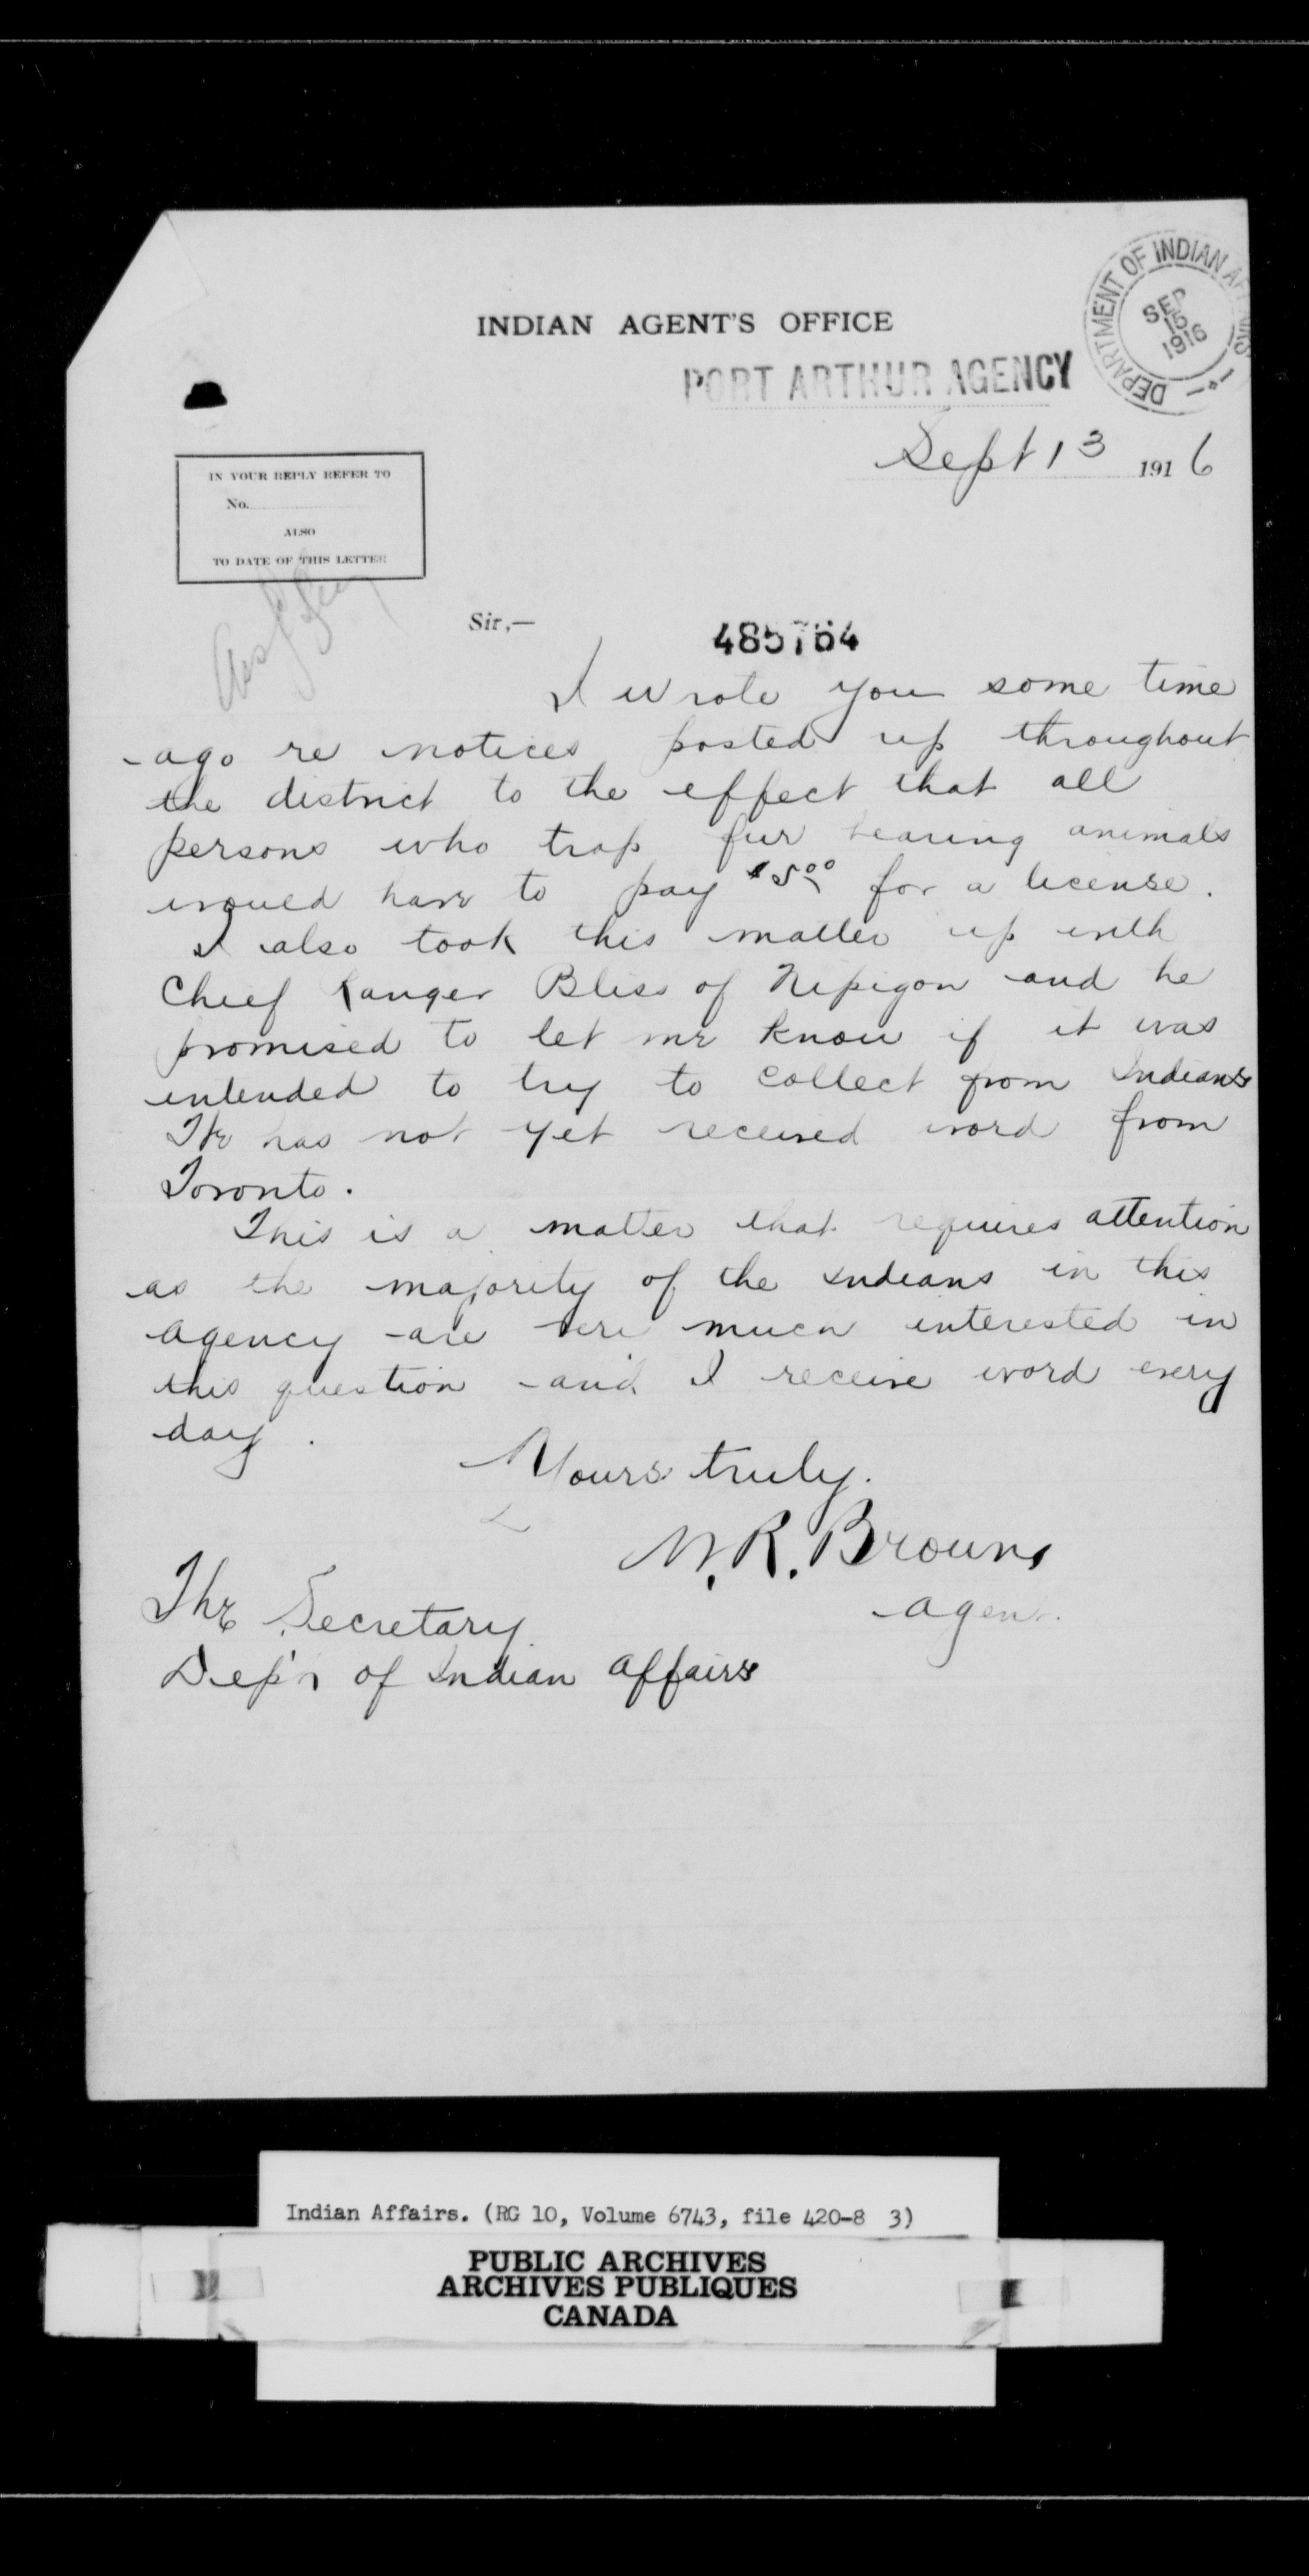 DEPARTMENT OF INDIAN AFFAIRS
SEP
15
1916
INDIAN AGENT'S OFFICE
PORT ARTHUR AGENCY
Sept 13 1916
IN YOUR REPLY REFER TO
No.
ALSO
TO DATE OF THIS LETTER
Sir,—
485764
I wrote you some time
ago re notices posted up throughout
the district to the effect that all
persons who trap fur bearing animals
would have to pay $5.00 for a license.
I also took this matter up with
Chief Ranger Bliss of Nipigon and he
promised to let me know if it was
intended to try to collect from Indians
He has not yet received word from
Toronto.
This is a matter that requires attention
as the majority of the Indians in this
agency are very much interested in
this question and I receive word every
day.
Yours truly.
W. R. Brown
agent.
The Secretary
Dep't of Indian Affairs
Indian Affairs. (RG 10, Volume 6743, file 420-8 3)
PUBLIC ARCHIVES
ARCHIVES PUBLIQUES
CANADA